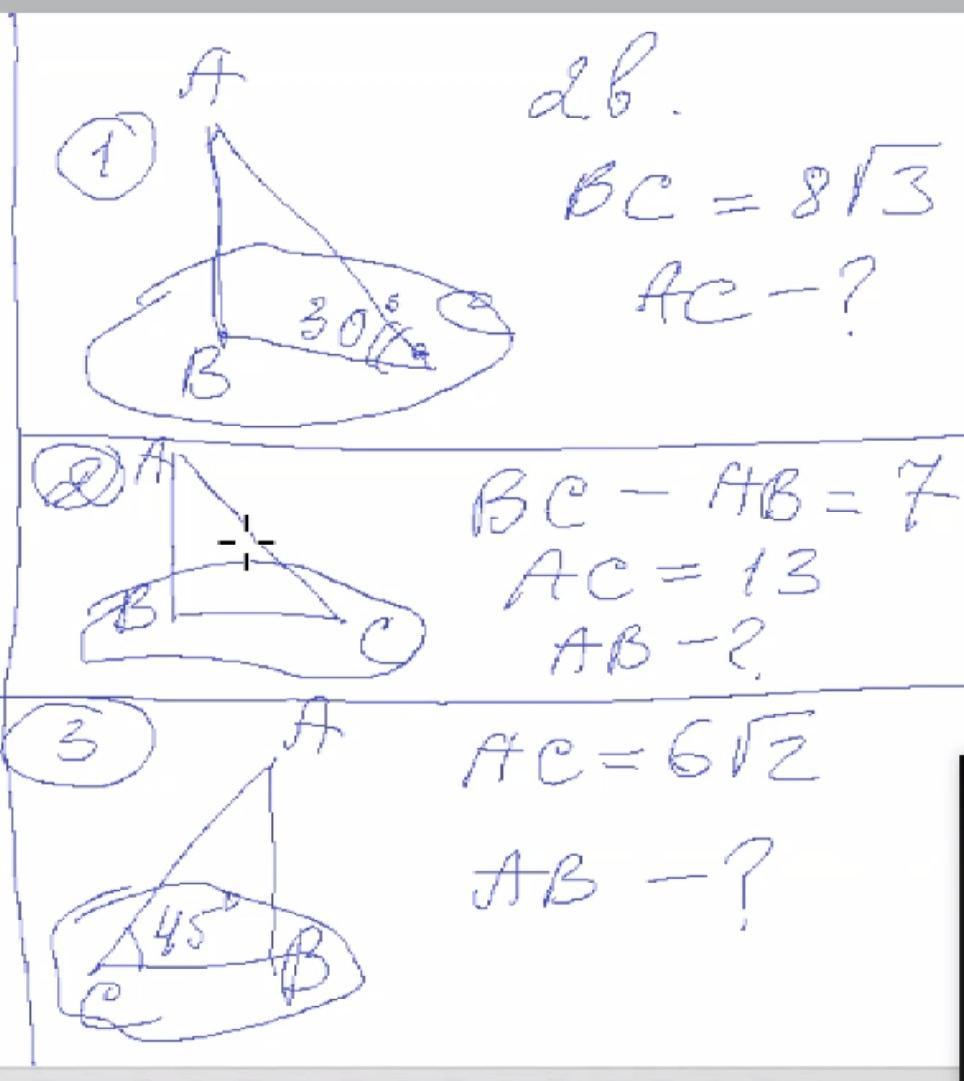 2в.
1
A
B
30°
C
BC = 8√3
AC - ?
2
A
B
C
BC - AB = 7
AC = 13
AB - ?
3
A
45°
B
C
AC = 6√2
AB - ?